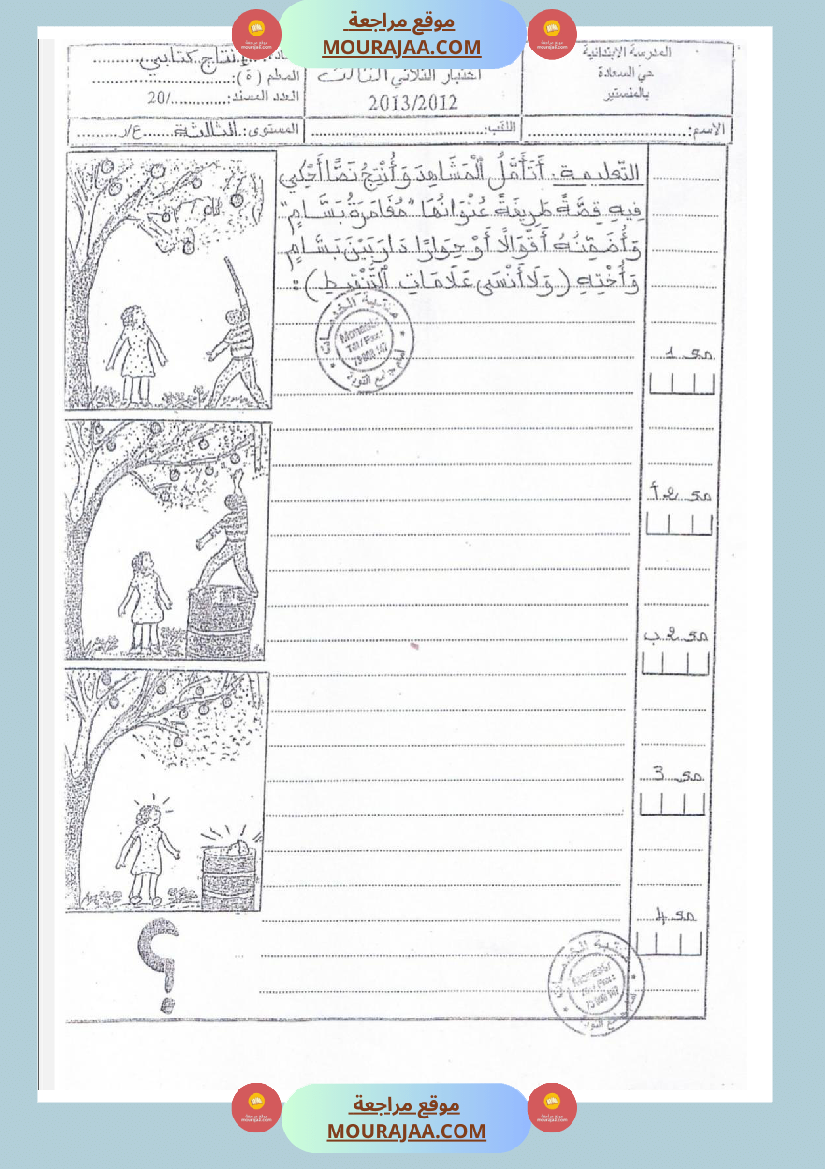 موقع مراجعة
MOURAJAA.COM
المدرسة الابتدائية
حيّ السعادة
بالمنستير
اختبار الثلاثي الثالث
2013/2012
إنتاج كتابي
المعلم (ة) :
العدد المسند:............/20
الاسم:
اللقب:
المستوى: الثالثة
التّعليمة: أَتَأَمَّلُ الْمَشَاهِدَ وَأُنْتِجُ نَصًّا أَحْكِي
فِيهِ قِصَّةً طَرِيفَةً عُنْوَانُهَا "مُغَامَرَةُ بَسَّامٍ"
وَأُضَمِّنُهُ أَقْوَالًا أَوْ حِوَارًا دَارَ بَيْنَ بَسَّامٍ
وَأُخْتِهِ (وَلَا أَنْسَى عَلَامَاتِ التَّنْقِيطِ) :
مع 1
مع 2 أ
مع 2 ب
مع 3
مع 4
؟
موقع مراجعة
MOURAJAA.COM